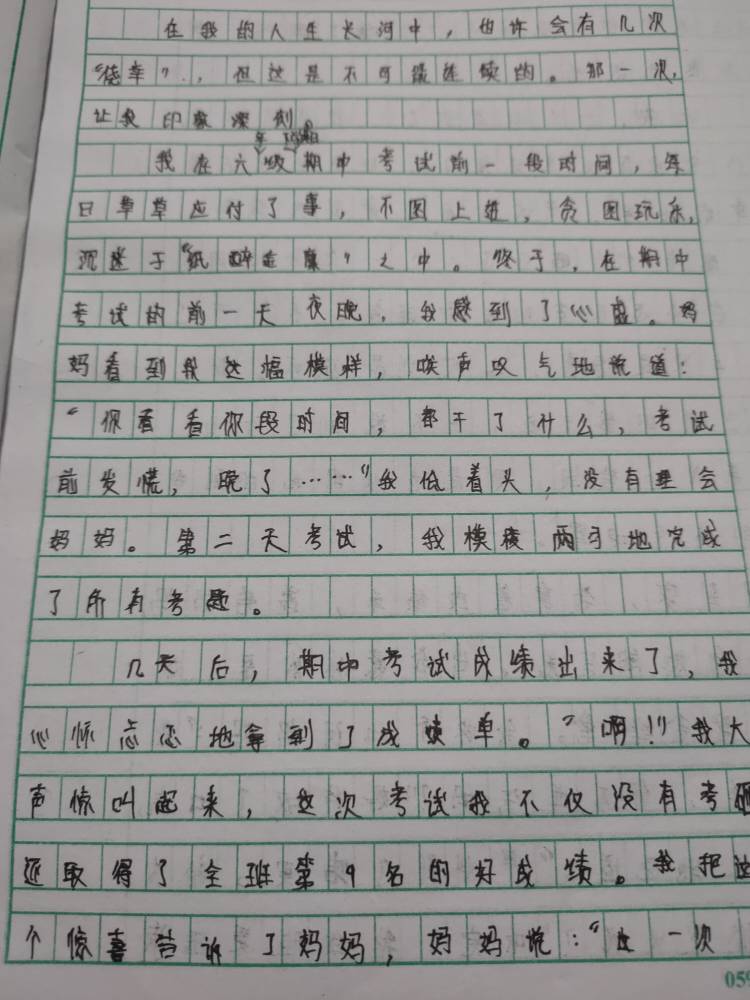 在我的人生长河中，也许会有几次
“侥幸”，但这是不可最连续的。那一次，
让我印象深刻。
年
我在六级期中考试前一段时间，每
日草草应付了事，不图上进，贪图玩乐，
沉迷于“纸醉金糜”之中。终于，在期中
考试的前一天夜晚，我感到了心虚。妈
妈看到我这幅模样，唉声叹气地说道：
“你看看你段时间，都干了什么，考试
前发慌，晚了……”我低着头，没有理会
妈妈。第二天考试，我模棱两可地完成
了所有考题。
几天后，期中考试成绩出来了，我
心惊忐忑地拿到了成绩单。“啊！”我大
声惊叫起来，这次考试我不仅没有考砸
还取得了全班第9名的好成绩。我把这
个惊喜告诉了妈妈，妈妈说：“这一次
059